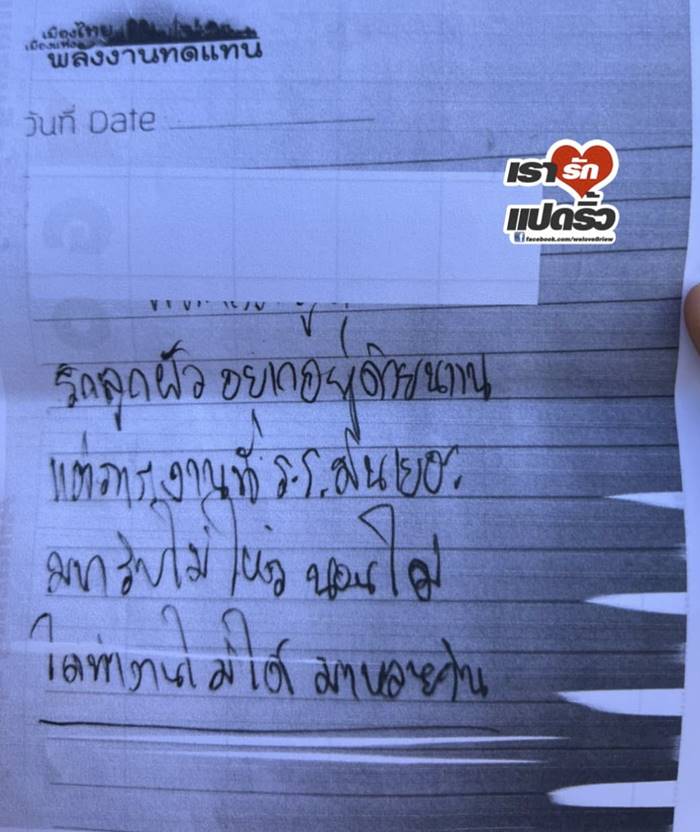 เมืองไทย
พลังงานทดแทน
วันที่ Date
เรารัก
แปดริ้ว
facebook.com/welove8riew
รักลูกผัว อยากอยู่ด้วยนาน
แต่ภาระงานที่ ร.ร. มันเยอะ
มาก รับไม่ไหว นอนไม่
ได้ทำงานไม่ได้ มาหลายคืน